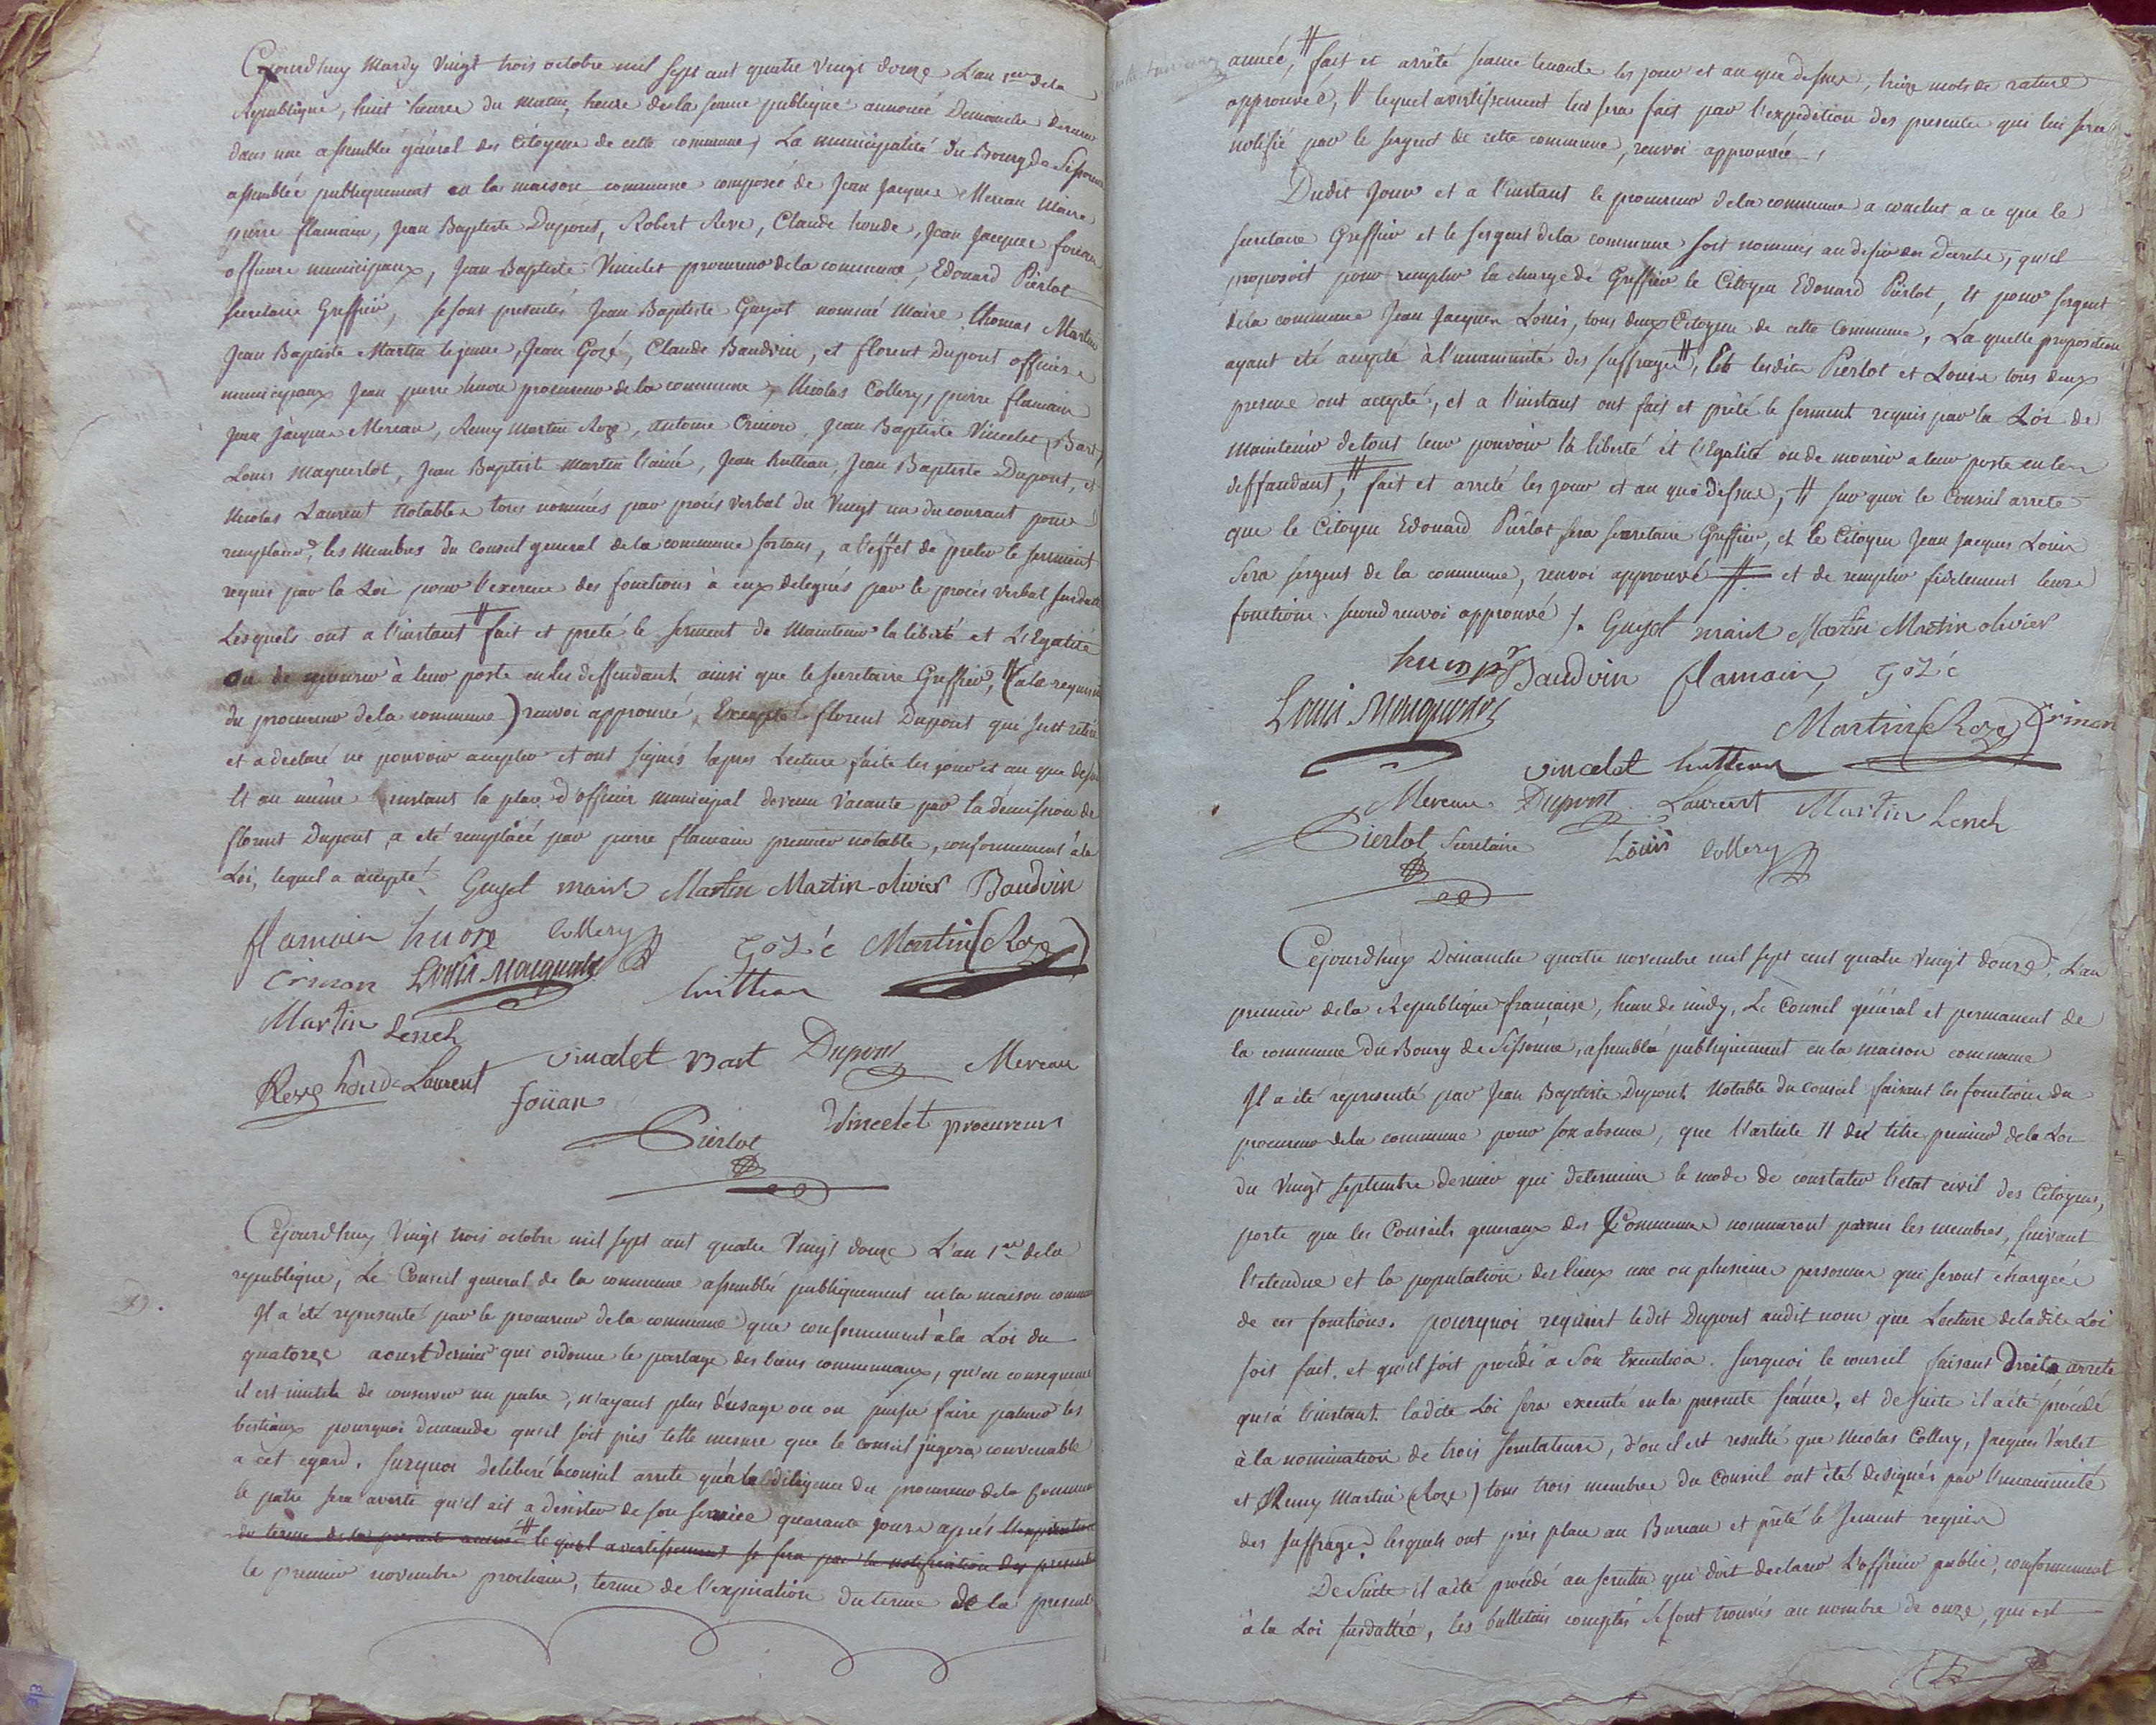 Cejourdhuy Mardy vingt trois octobre mil sept cent quatre vingt douze L'an 1er dela
Republique, huit heures du matin, heure dela seance publique annoncée Dimanche dernier
dans une assemblée général des Citoyens de cette commune, La municipalité du Bourg de Sissonne
assemblée publiquement en la maison commune composée de Jean Jacques Mereau Maire
pierre flamain, Jean Baptiste Dupont, Robert Reve, Claude houde, Jean Jacques foüan
officiers municipaux, Jean Baptiste Vincelet procureur dela commune, Edouard Pierlot
secretaire Greffier, se sont presentés Jean Baptiste Guyot nommé Maire Thomas Martin
Jean Baptiste Martin le jeune, Jean Gozé, Claude Baudvin, et florent Dupont officiers
municipaux Jean pierre huon procureur de la commune, Nicolas Collery, pierre flamain
Jean Jacques Mereau, Remy Martin Roze, antoine Crinon, Jean Baptiste Vincelet, Bart,
Louis Maquerlot, Jean Baptiste Martin l'ainé, Jean hutteau, Jean Baptiste Dupont, et
Nicolas Laurent Notables tous nommés par procés verbal du Vingt un du courant pour
remplacer les Membres du Conseil general dela commune sortans, a l'effet de preter le serment
requis par la Loi pour l'exercice des fonctions à eux delegués par le procés verbal susdatté
Lesquels ont a l'instant # fait et preté le serment de Maintenir la liberté et L'Egalité
ou de mourir à leur poste en les deffendant ainsi que le secretaire Greffier, # (a la requisition
du procureur dela commune) renvoi approuvé, Excepté florent Dupont qui sest retiré
et a declaré ne pouvoir accepter et ont signés apres Lecture faite les jour et an que dessus
Et au même instant la place d'officier municipal devenue vacante par la demission de
florent Dupont, a eté remplacé par pierre flamain premier notable, conformement à la
Loi, lequel a accepté. Guyot maire Martin Martin-olivier Baudvin
flamain huon Collery Gozé Martin (Roze)
Crinon Louis Maquerlot hutteau
Martin Lench
Vincelet Bart Dupont Mereau
Reve houde Laurent foüan
Vincelet procureur
Pierlot
Cejourdhuy Vingt trois octobre mil sept cent quatre Vingt douze L'an 1er dela
republique, Le Conseil general de la commune assemblée publiquement en la maison commune
Il a été representé par le procureur dela commune que conformement à la Loi du
quatorze aoust dernier qui ordonne le partage des biens communaux, qu'en consequence
il est inutile de conserver un patre, n'ayant plus d'usage ou on puisse faire paturer les
bestiaux pourquoi demande qu'il soit pris telle mesure que le conseil jugera convenable
a cet egard. Surquoi deliberé le conseil arrete qu'a la diligence du procureur dela commune
le patre sera averti qu'il ait a desister de son service quarante jours après l'expiration
du terme de la presente année # lequel avertissement se fera par la notification des presentes
le premier novembre prochain, terme de l'expiration du terme de la presente
année, # fait et arrêté seance tenante les jour et an que dessus, treize mots de rature
approuvés, # lequel avertissement lui sera fait par l'expedition des presentes qui lui sera
notifié par le sergent de cette commune, renvoi approuvée,
Dudit Jour et a l'instant le procureur dela commune a conclut a ce que le
secretaire Greffier et le sergent dela commune soit nommés au desir du Decrets, qu'il
proposoit pour remplir la charge de Greffier le Citoyen Edouard Pierlot, Et pour sergent
dela commune Jean Jacques Louis, tous deux Citoyens de cette Commune, Laquelle proposition
ayant eté accepté à l'unanimité des suffrages #, Et lesdits Pierlot et Louis tous deux
presens ont accepté, et a l'instant ont fait et prêté le serment requis par la Loi de
maintenir de tout leur pouvoir la liberté et l'Egalité ou de mourir a leur poste en les
deffandant, # fait et arrêté les jour et an que dessus, # sur quoi le Conseil arrete
que le Citoyen Edouard Pierlot sera secretaire Greffier, et le Citoyen Jean Jacques Louis
Sera sergent de la commune, renvoi approuvé # et de remplir fidelement leurs
fonctions second renvoi approuvé /. Guyot maire Martin Martin olivier
huon pr Baudvin flamain, Gozé
Louis Maquerlot Martin (Roze) Crinon
Vincelet hutteau
Mereau Dupont Laurent Martin Lench
Pierlot Secretaire Louis Collery
Cejourdhuy Dimanche quatre novembre mil sept cent quatre vingt douze, L'an
premier dela Republique française, heure de midy, Le Conseil général et permanent de
la commune du Bourg de Sissonne, assemblé publiquement en la maison commune
Il a été representé par Jean Baptiste Dupont Notable du conseil faisant les fonctions du
procureur dela commune pour son absence, que l'article II du titre premier dela Loi
du Vingt septembre dernier qui determine le mode de constater l'etat civil des Citoyens,
porte que les Conseils generaux des Communes nommeront parmi les membres, suivant
l'etendue et la population des lieux une ou plusieurs personnes qui seront chargées
de ces fonctions. pourquoi requiert ledit Dupont audit nom que Lecture deladite Loi
soit fait. et qu'il soit procédé a son Execution. Surquoi le conseil faisant Droit a arrete
qu'à l'instant ladite Loi sera executé en la presente séance, et de suite il a été procédé
à la nomination de trois scrutateurs, d'ou il est resulté que Nicolas Collery, Jacques Varlet
et Remy Martin (Roze) tous trois membres du Conseil ont étés designés par l'unanimité
des suffrages lesquels ont pris place au Bureau et prêté le serment requis
De Suite il a été procédé au scrutin qui doit declarer L'officier public, conformement
à la Loi susdattée, les bulletins comptés se sont trouvés au nombre de onze, qui est